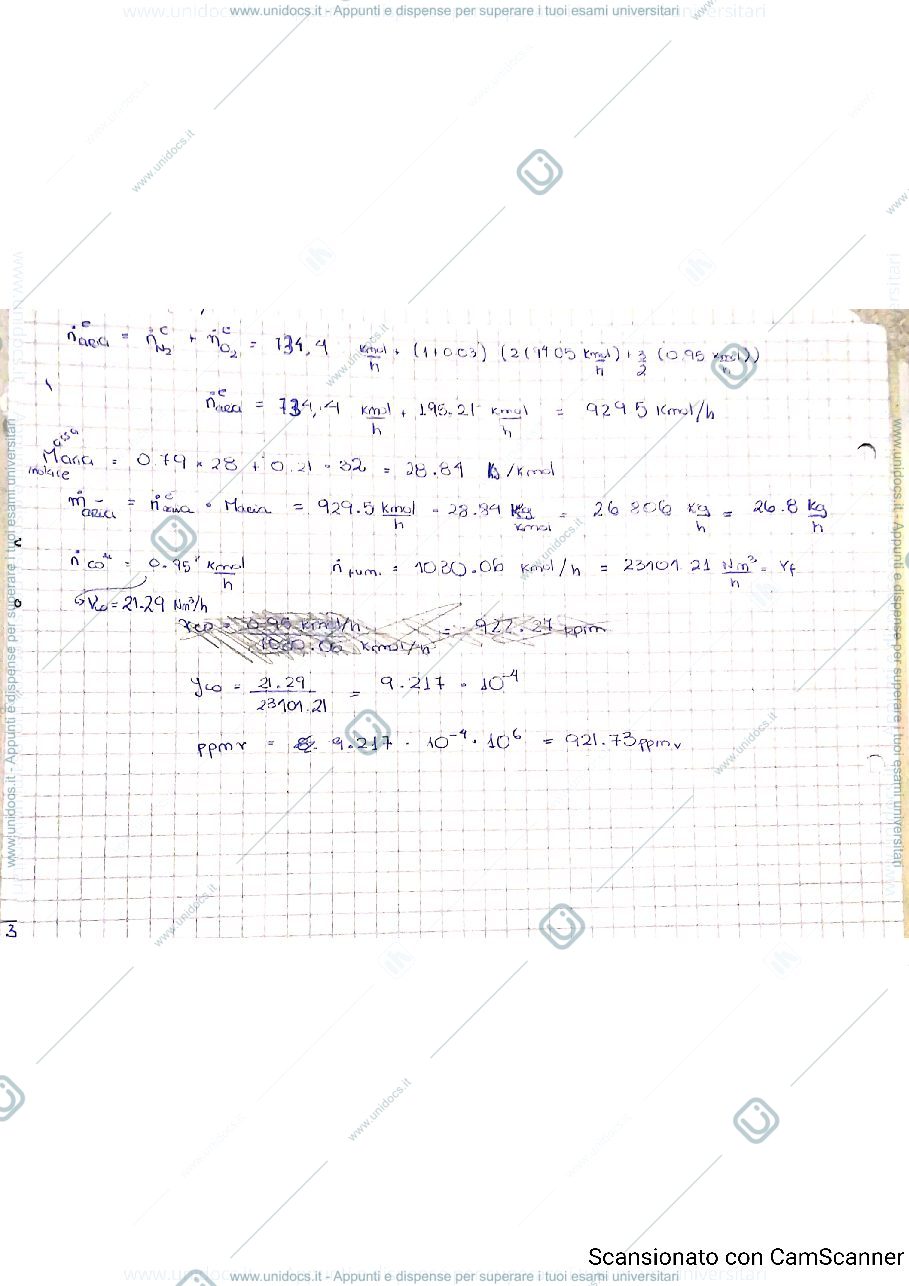 www.unidocs.it - Appunti e dispense per superare i tuoi esami universitari
ṅ^e aria = ṅ^e N2 + ṅ^e O2 = 734,4 kmol/h + (1+0.03) (2(94.05 kmol/h) + 3/2 (0.95 kmol/h))
ṅ^e aria = 734,4 kmol/h + 195.21 kmol/h = 929.5 kmol/h
Massa
Maria = 0.79 * 28 + 0.21 * 32 = 28.84 kg/kmol
molare
ṁ aria = ṅ^e aria • Maria = 929.5 kmol/h • 28.84 kg/kmol = 26 806 kg/h = 26.8 kg/h
ṅ co = 0.95 kmol/h ṅ fum. = 1030.06 kmol/h = 23101.21 Nm³/h = Vf
Vco = 21.29 Nm³/h
xco = 0.95 kmol/h / 1030.06 kmol/h = 922.27 ppm
yco = 21.29 / 23101.21 = 9.217 • 10^-4
ppmv = 9.217 • 10^-4 • 10^6 = 921.73 ppmv
3
Scansionato con CamScanner
www.unidocs.it - Appunti e dispense per superare i tuoi esami universitari